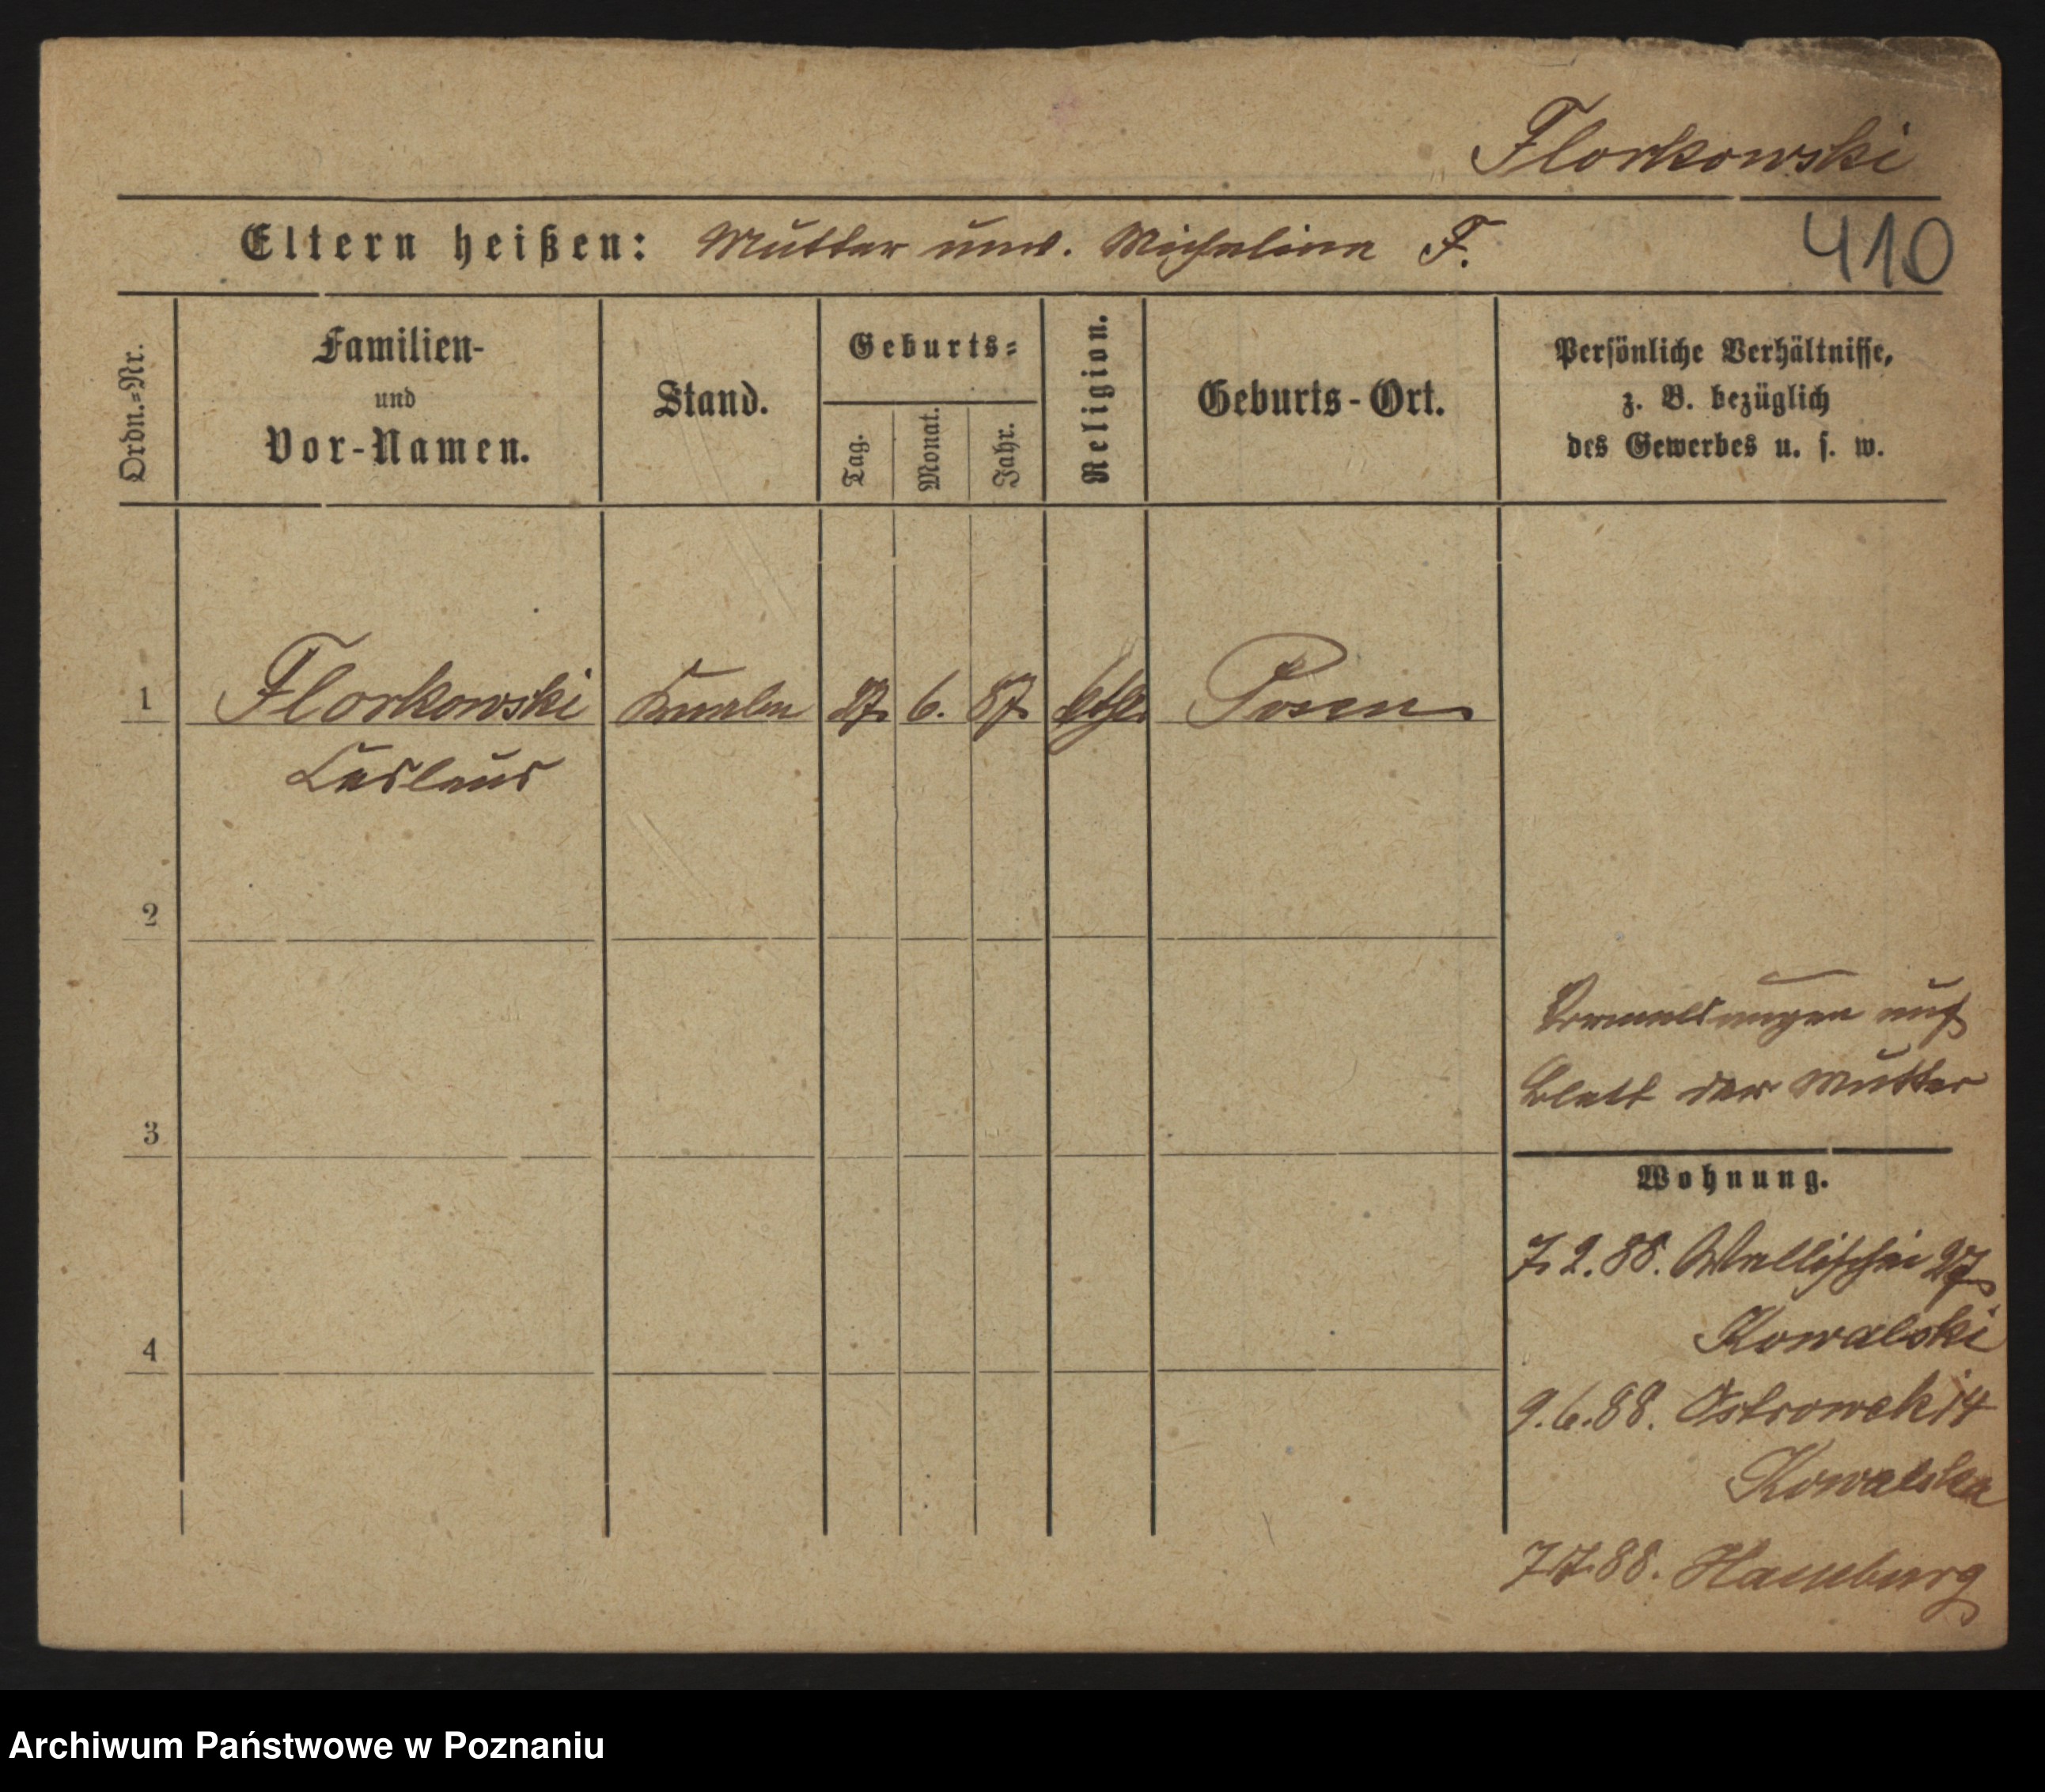 Florkowski
Eltern heißen: Mutter unv. Michalina F.
410
Ordn.=Nr.
Familien-
und
Vor-Namen.
Stand.
Geburts=
Tag.
Monat.
Jahr.
Religion.
Geburts-Ort.
Persönliche Verhältnisse,
z. B. bezüglich
des Gewerbes u. s. w.
1 Florkowski Knabe 27. 6. 87. kth. Posen
Ladlaus
2
3
4
Anmeldungen auf
Blatt der Mutter
Wohnung.
7. 2. 88. Wallischei 27
Kowalski
9. 6. 88. Ostrowek 14
Kowalska
7/7. 88. Hamburg
Archiwum Państwowe w Poznaniu